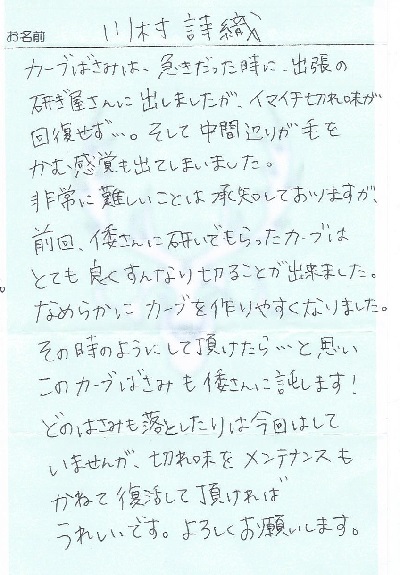 お名前 川村 詩織
カーブばさみは、急きだった時に、出張の
研ぎ屋さんに出しましたが、イマイチ切れ味が
回復せず…。そして中間辺りが毛を
かむ感覚も出てしまいました。
非常に難しいことは承知しておりますが、
前回、倭さんに研いでもらったカーブは
とても良くすんなり切ることが出来ました。
なめらかにカーブを作りやすくなりました。
その時のようにして頂けたら…と思い
このカーブばさみも倭さんに託します!
どのはさみも落としたりは今回はして
いませんが、切れ味をメンテナンスも
かねて復活して頂ければ
うれしいです。よろしくお願いします。